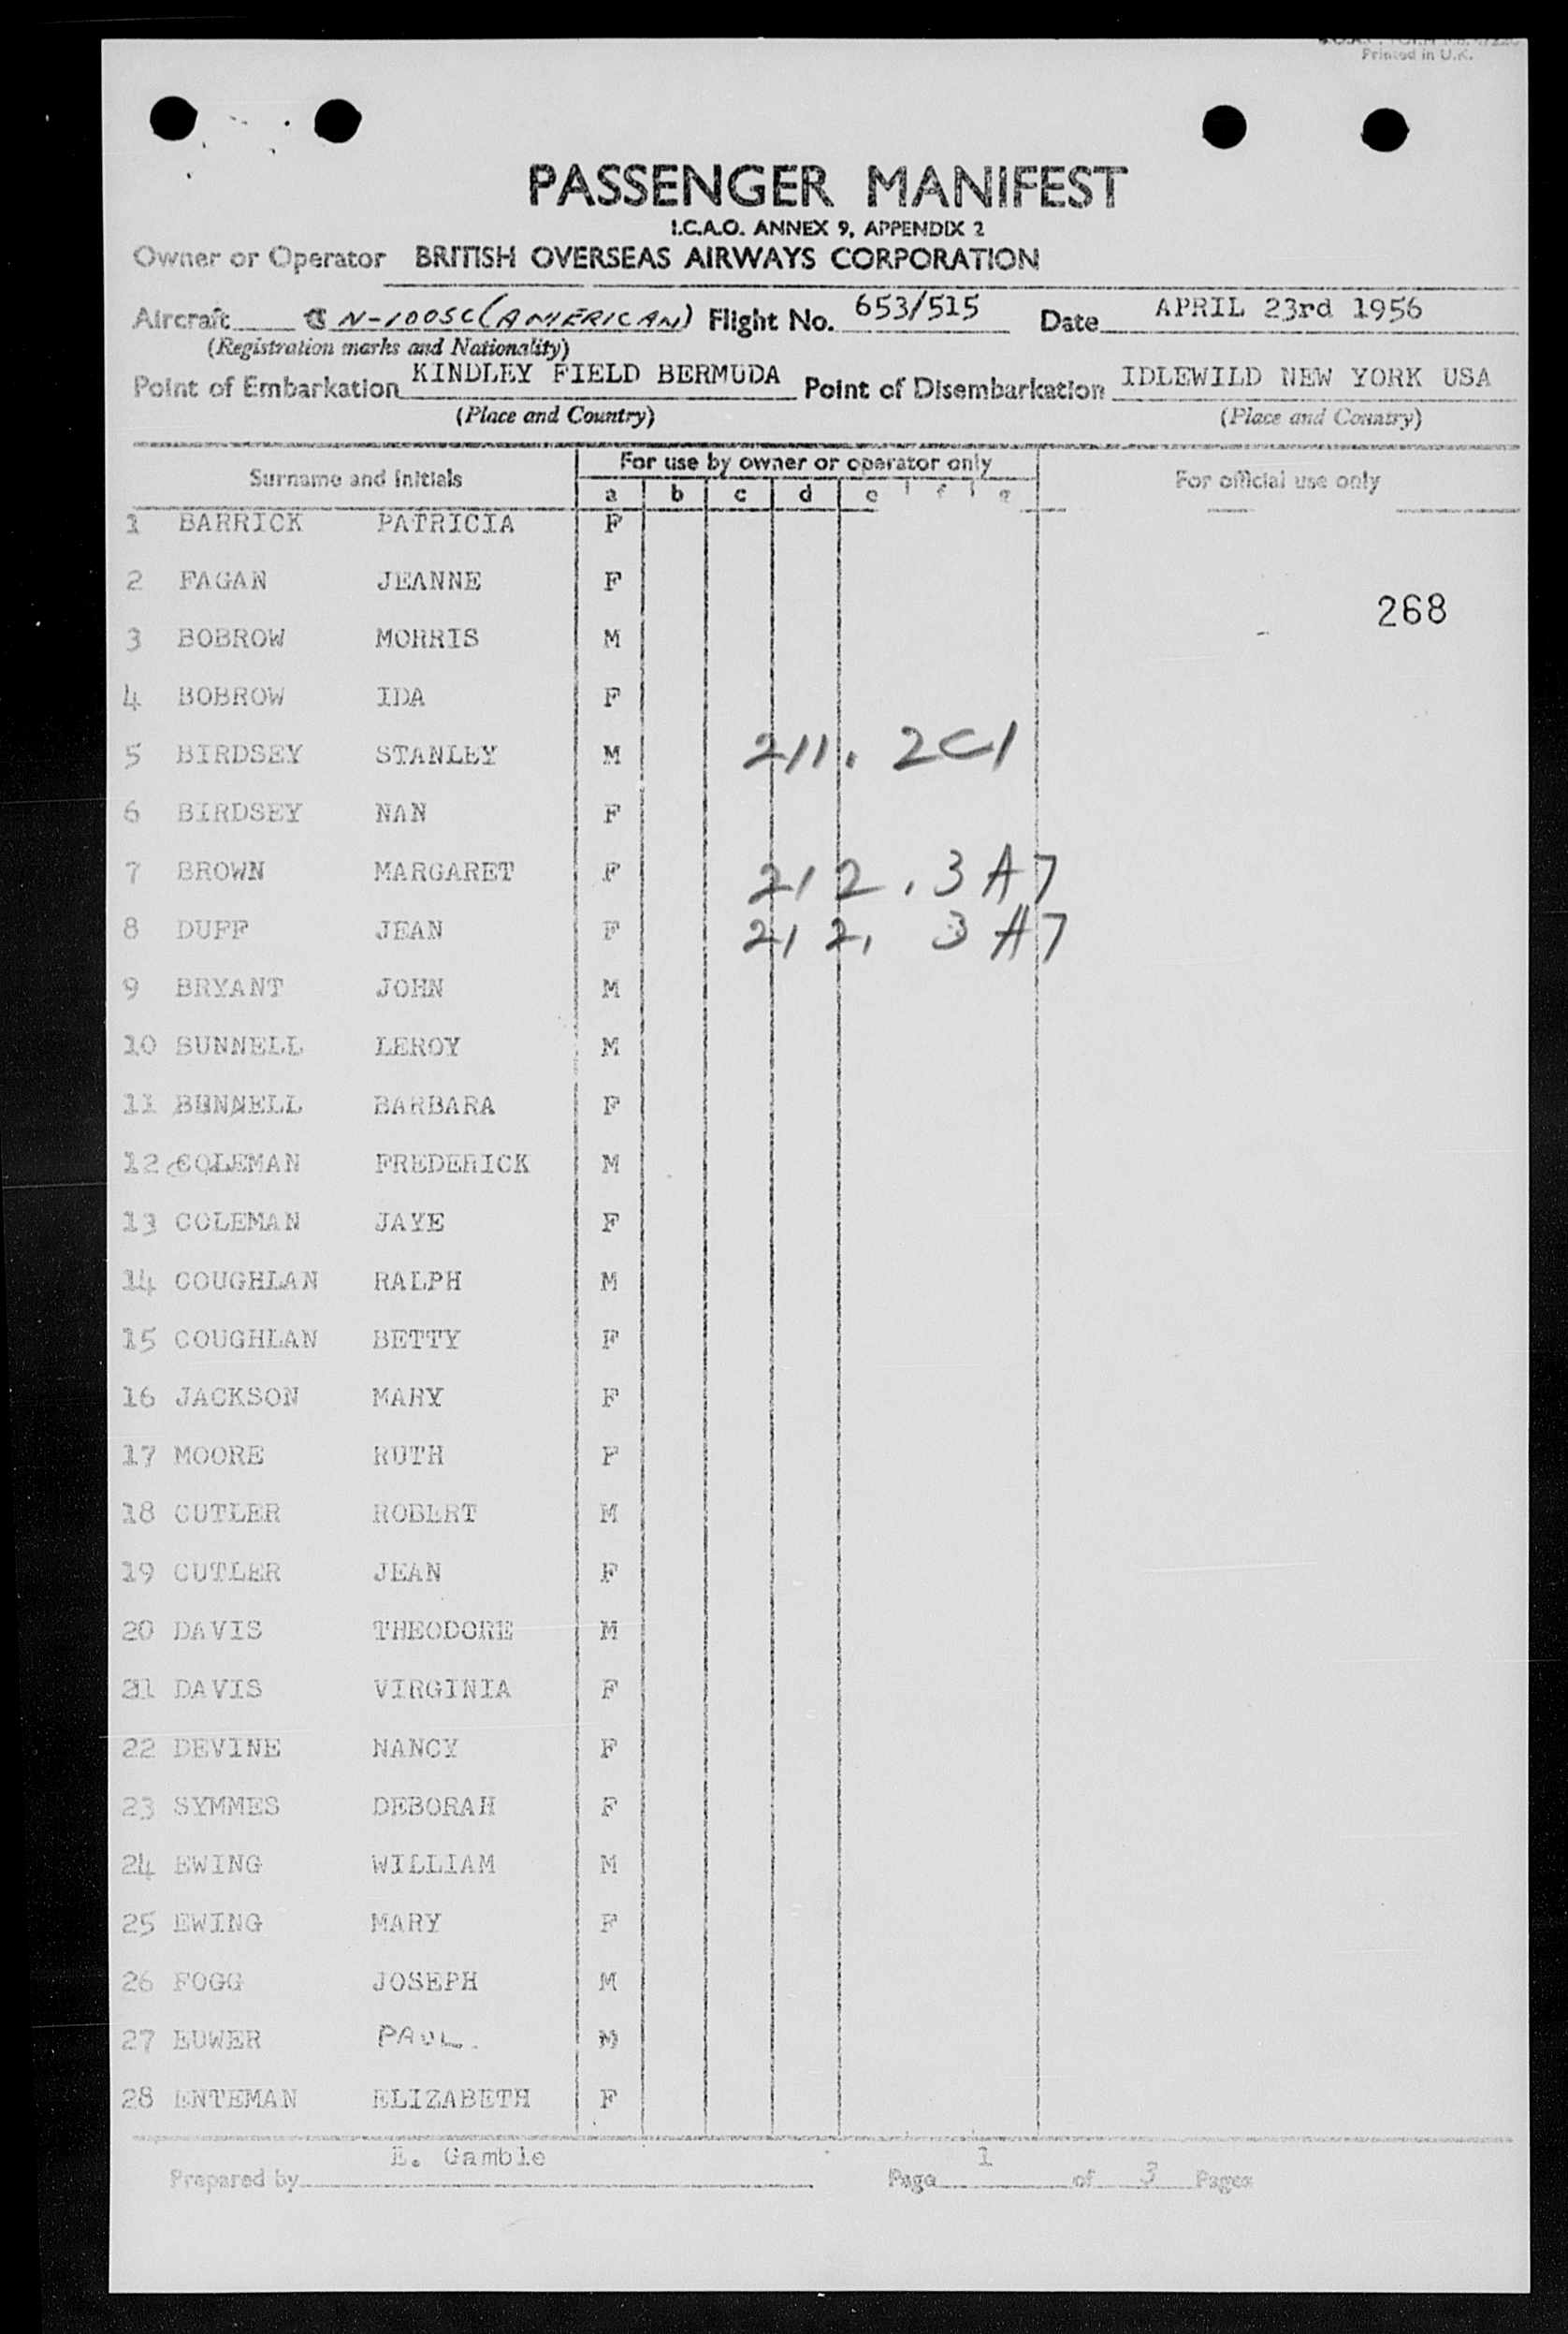 Printed in U.K.
PASSENGER MANIFEST
I.C.A.O. ANNEX 9, APPENDIX 2
Owner or Operator BRITISH OVERSEAS AIRWAYS CORPORATION
Aircraft N-1005C (AMERICAN) Flight No. 653/515 Date APRIL 23rd 1956
(Registration marks and Nationality)
Point of Embarkation KINDLEY FIELD BERMUDA Point of Disembarkation IDLEWILD NEW YORK USA
(Place and Country) (Place and Country)
Surname and Initials For use by owner or operator only For official use only
a b c d e f g
1 BARRICK PATRICIA F
2 FAGAN JEANNE F
268
3 BOBROW MORRIS M
4 BOBROW IDA F
5 BIRDSEY STANLEY M 211. 2C1
6 BIRDSEY NAN F
7 BROWN MARGARET F 212. 3A7
8 DUFF JEAN F 212. 3A7
9 BRYANT JOHN M
10 BUNNELL LEROY M
11 BUNNELL BARBARA F
12 COLEMAN FREDERICK M
13 COLEMAN JAYE F
14 COUGHLAN RALPH M
15 COUGHLAN BETTY F
16 JACKSON MARY F
17 MOORE RUTH F
18 CUTLER ROBERT M
19 CUTLER JEAN F
20 DAVIS THEODORE M
21 DAVIS VIRGINIA F
22 DEVINE NANCY F
23 SYMMES DEBORAH F
24 EWING WILLIAM M
25 EWING MARY F
26 FOGG JOSEPH M
27 EUWER PAUL. M
28 ENTEMAN ELIZABETH F
Prepared by E. Gamble Page 1 of 3 Pages